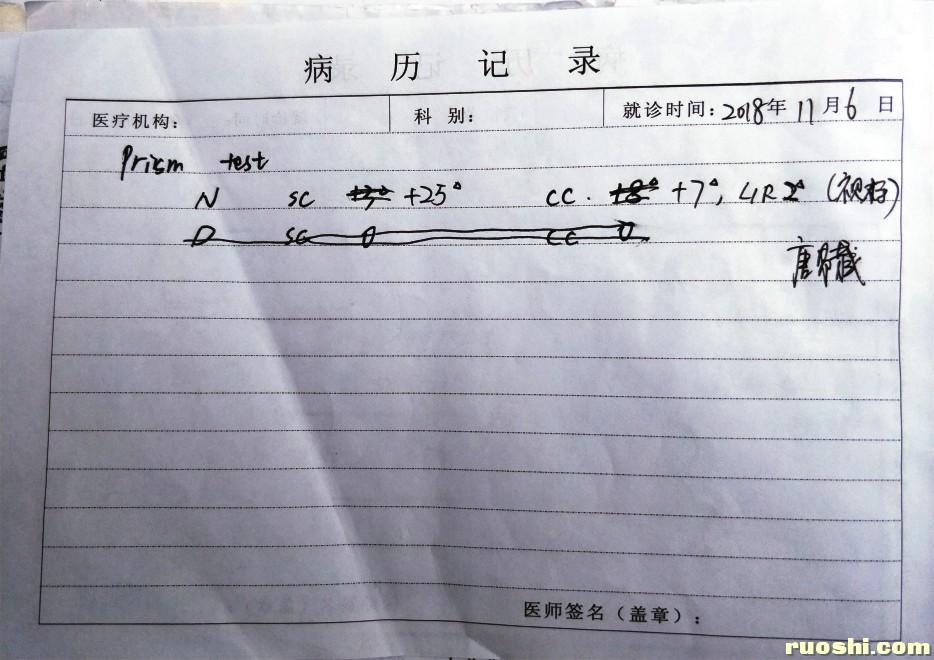 病 历 记 录
医疗机构： 科 别： 就诊时间：2018年 11月 6 日
Prism test
N SC +25△ CC. +7△, L/R 2△
D SC 0 CC 0
医师签名（盖章）：
ruoshi.com